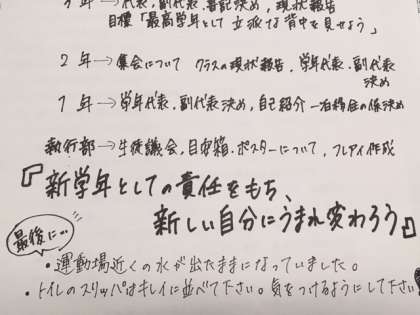 3年→代表、副代表、書記決め、現状報告
目標「最高学年として立派な背中を見せよう」
2年→集会について クラスの現状報告、学年代表・副代表
決め
1年→学年代表、副代表決め、自己紹介 一泊移住の係決め
執行部→生徒議会、目安箱・ポスターについて、フレアイ作成
『新学年としての責任をもち、
新しい自分にうまれ変わろう』
最後に…
・運動場近くの水が出たままになっていました。
・トイレのスリッパはキレイに並べて下さい。気をつけるようにして下さい